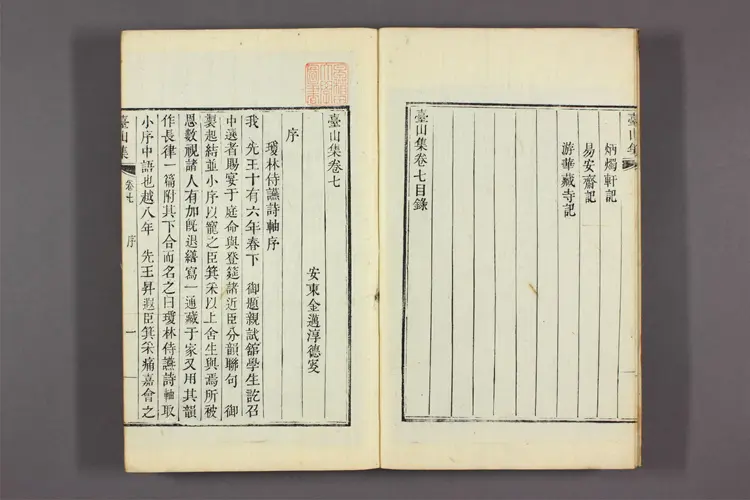 臺山集
炳燭軒記
易安齋記
游華藏寺記
臺山集卷七目錄
臺山集卷七
安東金邁淳德叟
序
瓊林侍讌詩軸序
我 先王十有六年春下 御題親試舘學生訖召
中選者賜宴于庭命與登筵諸近臣分韻聯句 御
製起結並小序以寵之臣箕采以上舍生與焉所被
恩數視諸人有加旣退繕寫一通藏于家又用其韻
作長律一篇附其下合而名之曰瓊林侍讌詩軸取
小序中語也越八年 先王昇遐臣箕采痛嘉會之
臺山集 卷七 序 一